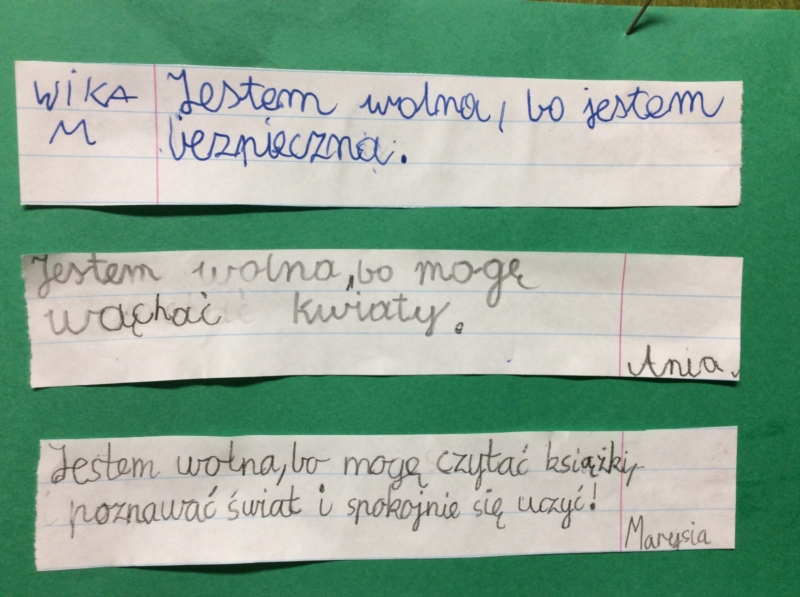 WIKA M
Jestem wolna, bo jestem
bezpieczna.
Jestem wolna, bo mogę
wąchać kwiaty.
Ania.
Jestem wolna, bo mogę czytać książki,
poznawać świat i spokojnie się uczyć!
Marysia